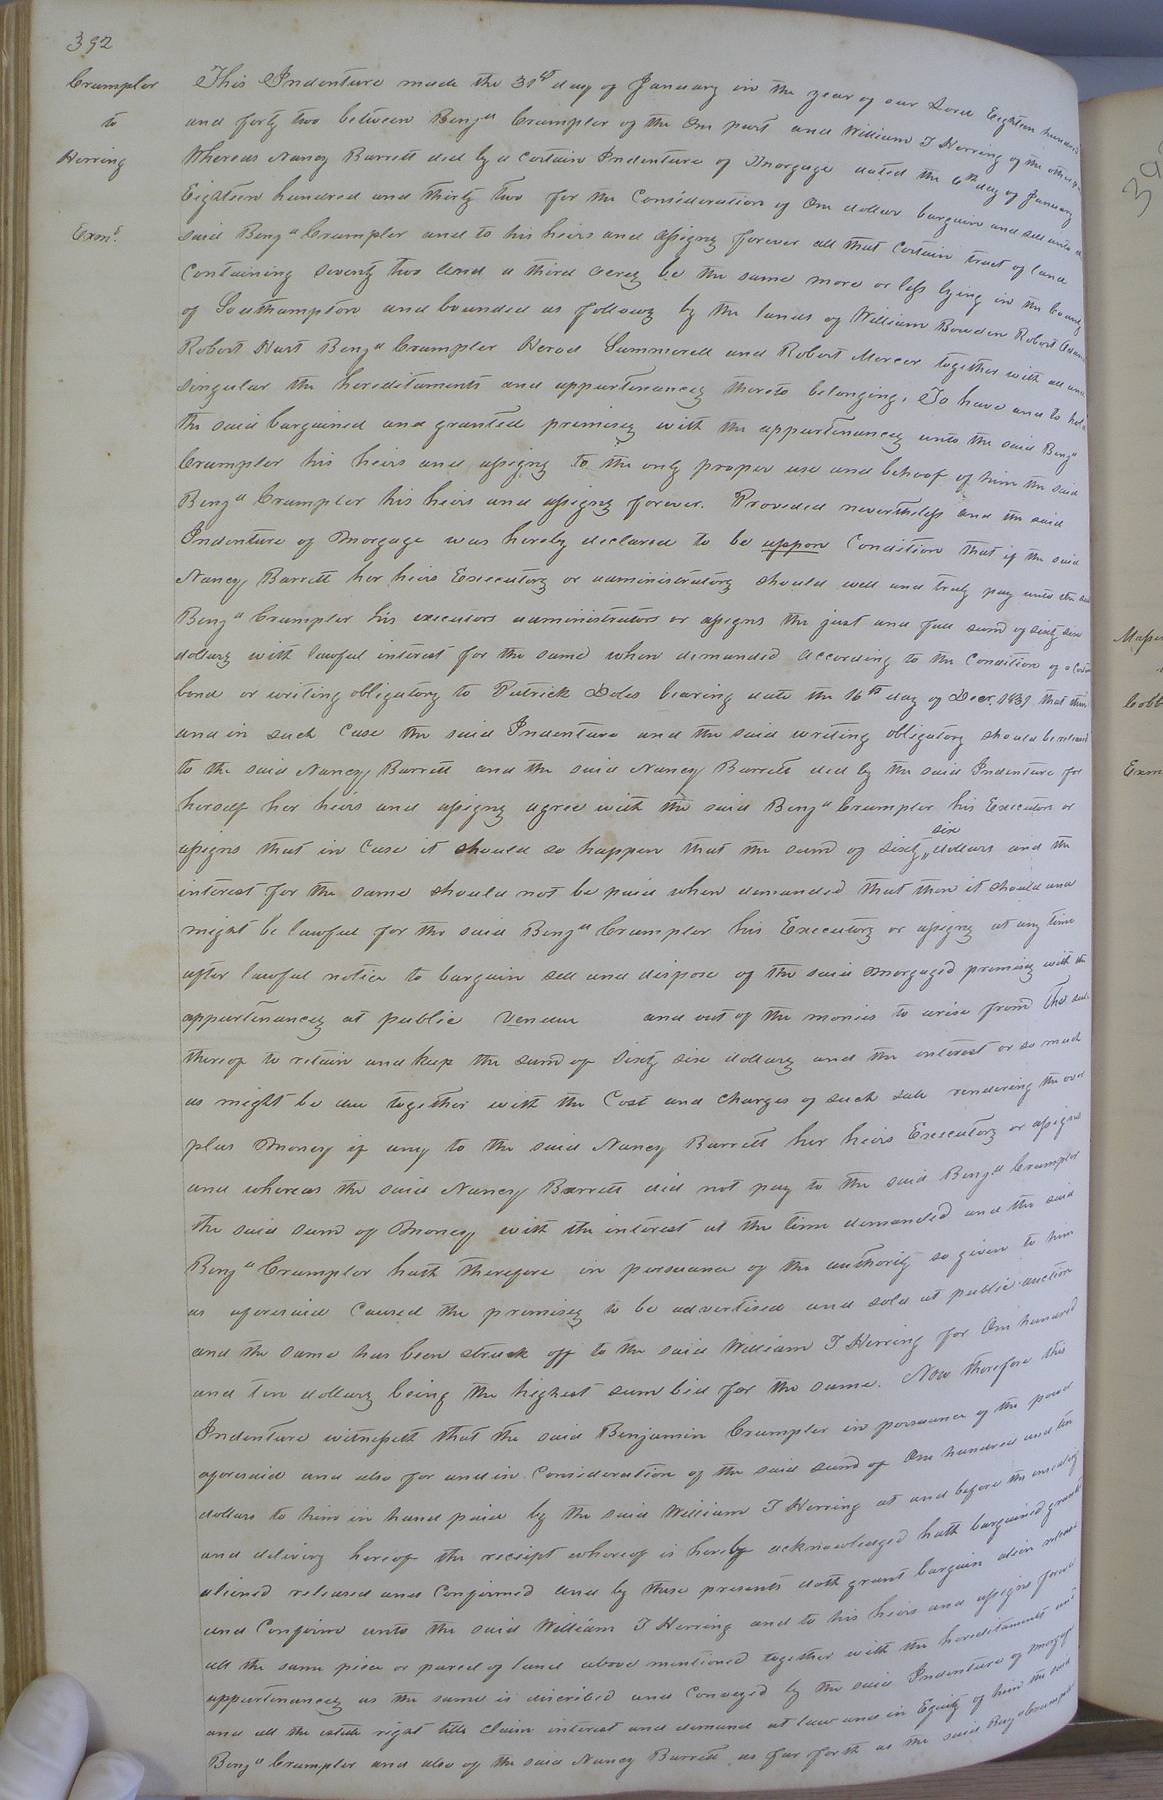 392
Crumpler
to
Herring
Exmd.
This Indenture made the 31st day of January in the year of our Lord Eighteen hundred
and forty two between Benja Crumpler of the One part and William T Herring of the other
Whereas Nancy Barrett did by a certain Indenture of Morgage dated the 6th day of January
Eighteen hundred and thirty two for the Consideration of One dollar bargain and sell unto
said Benja Crumpler and to his heirs and assigns forever all that certain tract of land
Containing Seventy two and a third acres be the same more or less lying in the County
of Southampton and bounded as follows by the lands of William Bowden Robert
Robert Hart Benja Crumpler Herod Summerell and Robert Mercer together with all and
singular the hereditaments and appurtenances thereto belonging, To have and to hold
the said bargained and granted premises with the appurtenances unto the said Benja
Crumpler his heirs and assigns to the only proper use and behoof of him the said
Benja Crumpler his heirs and assigns forever. Provided nevertheless and the said
Indenture of Morgage was hereby declared to be uppon Condition that if the said
Nancy Barrett her heirs Executors or administrators should well and truly pay unto the said
Benja Crumpler his executors administrators or assigns the just and full sum of sixty six
dollars with lawful interest for the same when demanded according to the Condition of a
bond or writing obligatory to Patrick Doles bearing date the 16th day of Decr. 1831 that then
and in such Case the said Indenture and the said writing obligatory should be released
to the said Nancy Barrett and the said Nancy Barrett did by the said Indenture for
herself her heirs and assigns agree with the said Benja Crumpler his Executors or
assigns that in Case it should so happen that the sum of sixty six dollars and the
interest for the same should not be paid when demanded that then it should and
might be lawful for the said Benja Crumpler his Executors or assigns at any time
after lawful notice to bargain sell and dispose of the said morgaged premises with the
appurtenances at public Vendue and out of the monies to arise from the sale
thereof to retain and keep the sum of Sixty six dollars and the interest or so much
as might be due together with the Cost and Charges of such sale rendering the over
plus Money if any to the said Nancy Barrett her heirs Executors or assigns
and whereas the said Nancy Barrett did not pay to the said Benja Crumpler
the said sum of Money with the interest at the time demanded and the said
Benja Crumpler hath therefore in persuance of the authority so given to him
as aforesaid Caused the premises to be advertised and sold at public auction
and the same has been struck off to the said William T Herring for One hundred
and ten dollars being the highest sum bid for the same. Now therefore this
Indenture witnesseth that the said Benjamin Crumpler in persuance of the power
aforesaid and also for and in Consideration of the said sum of One hundred and ten
dollars to him in hand paid by the said William T Herring at and before the ensealing
and delivery hereof the receipt whereof is hereby acknowledged hath bargained granted
aliened released and Confirmed and by these presents doth grant bargain alein release
and Confirm unto the said William T Herring and to his heirs and assigns forever
all the same piece or parcel of land above mentioned together with the hereditaments and
appurtenances as the same is discribed and Conveyed by the said Indenture of Morgage
and all the estate right title claim interest and demand at law and in Equity of him the said
Benja Crumpler and also of the said Nancy Barrett as far forth as the said Benja Crumpler
Cobb